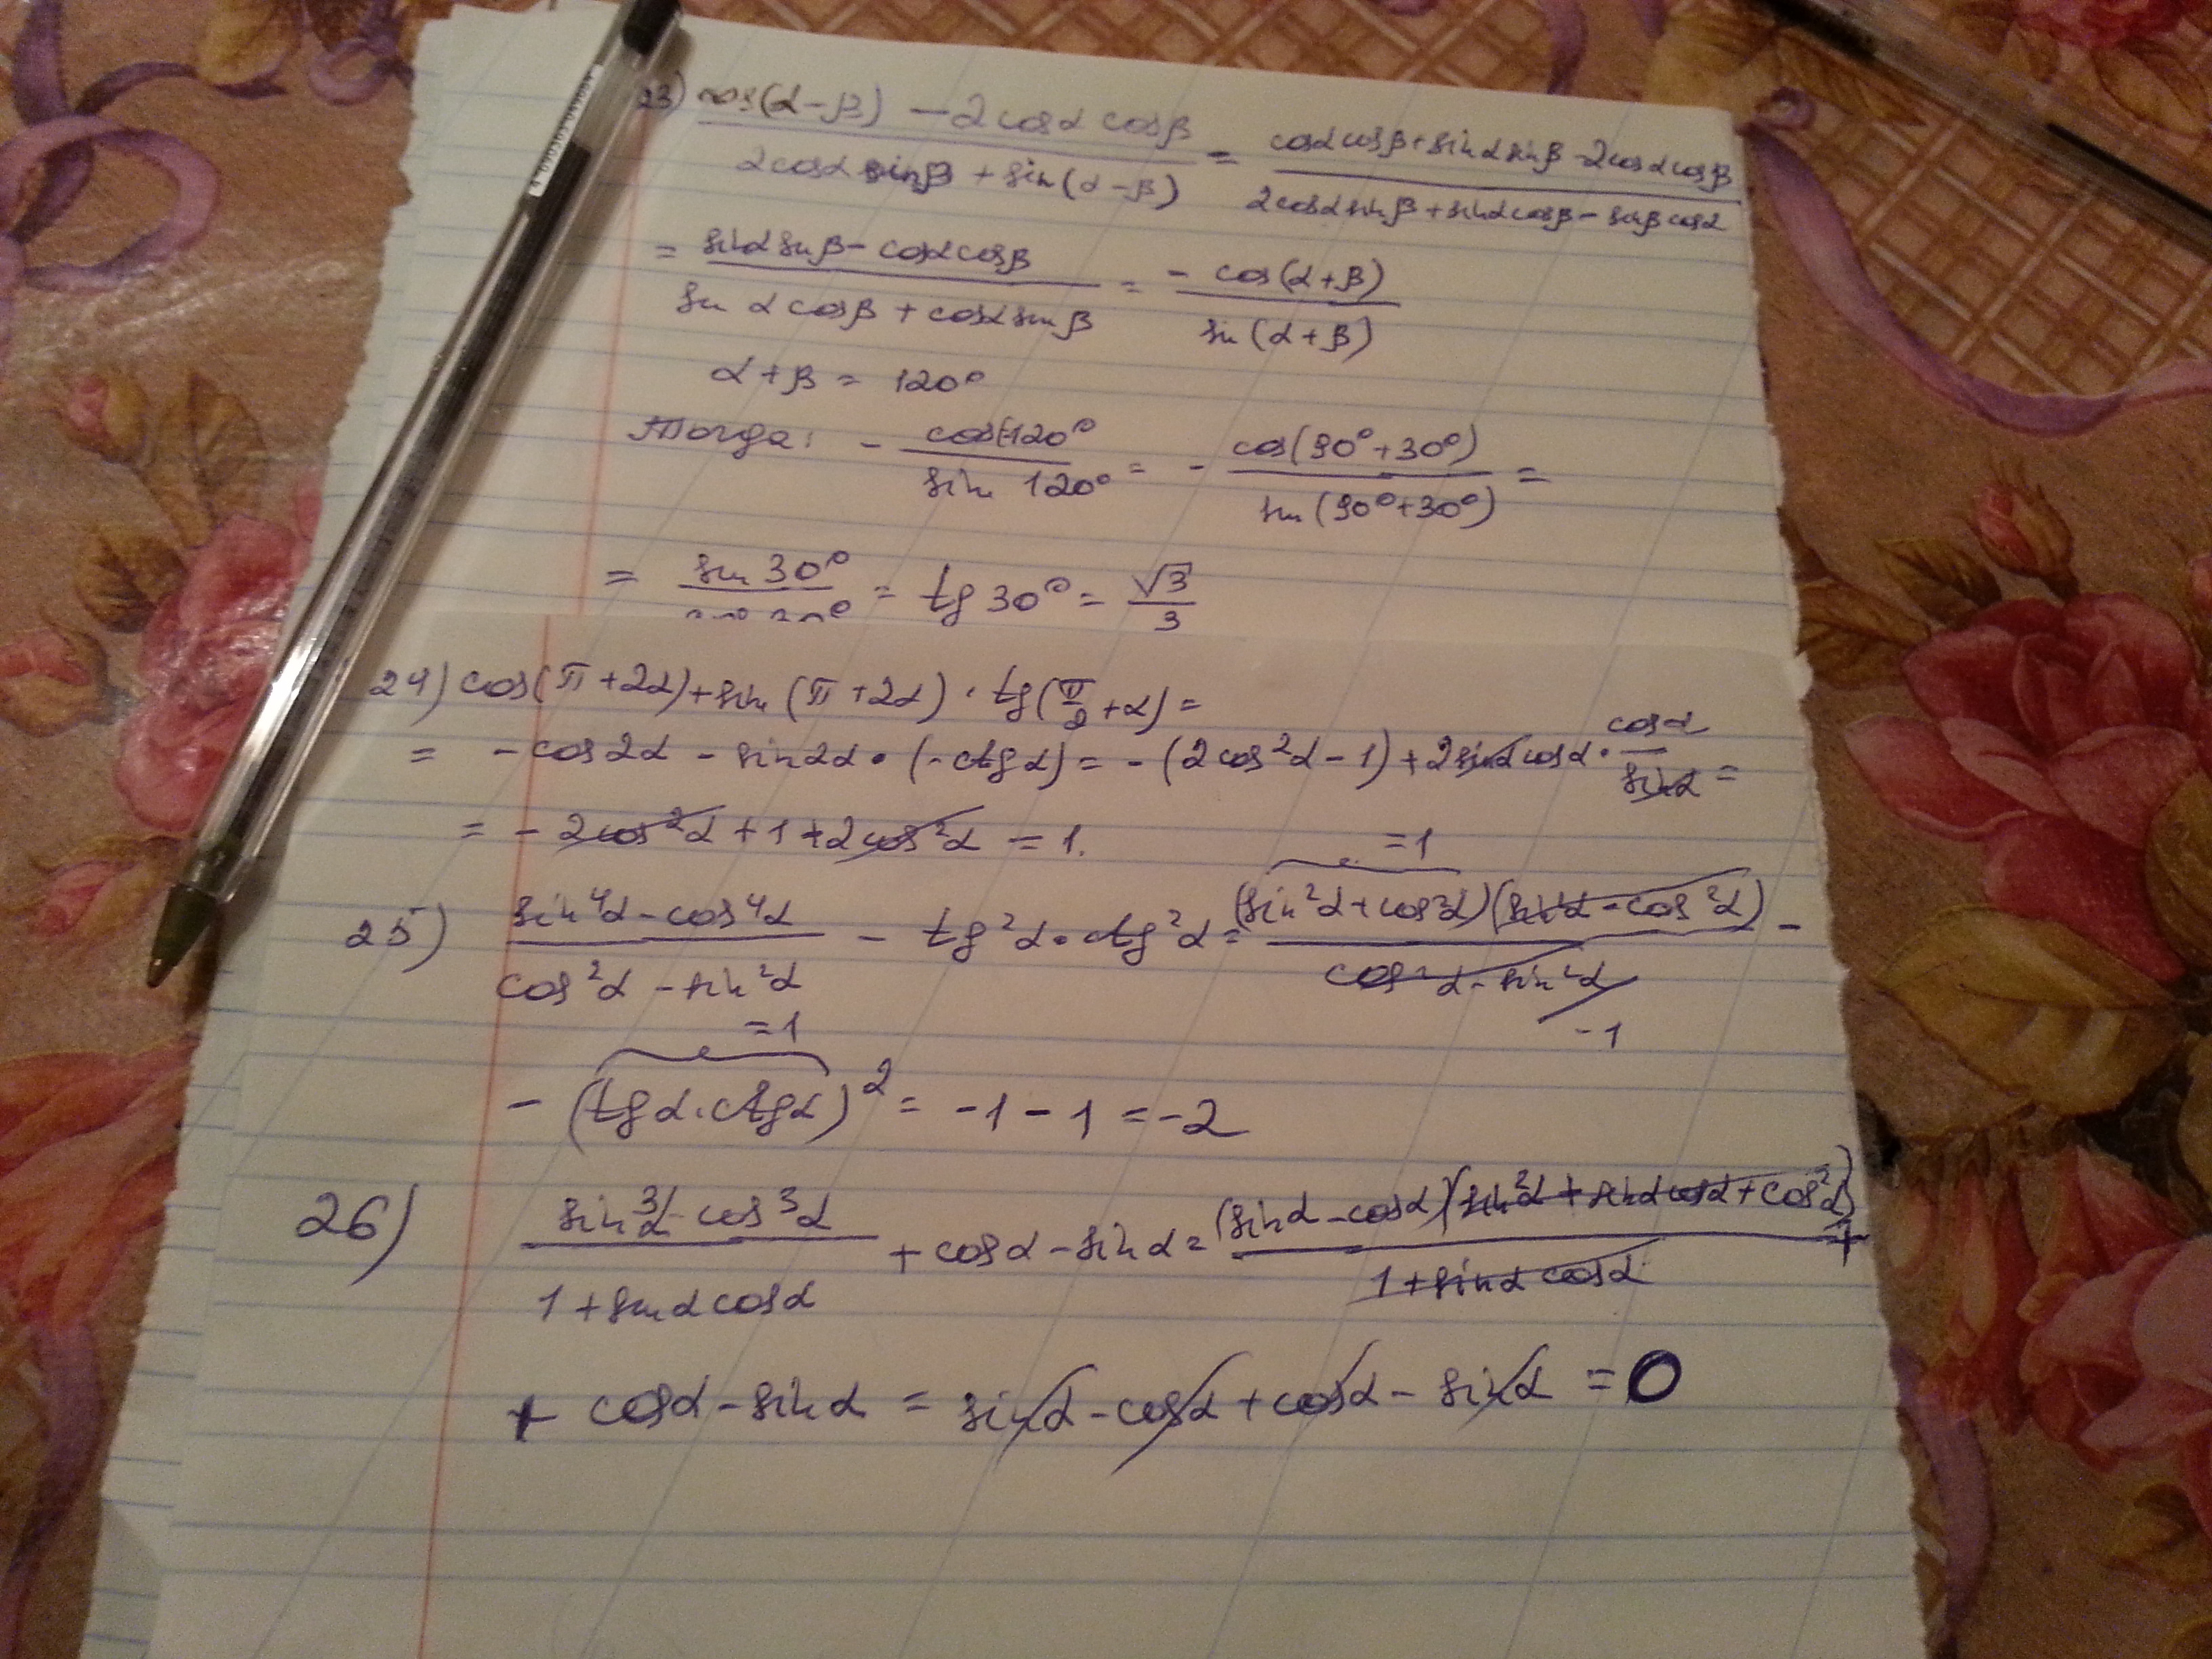 23) cos(α-β) - 2cosα cosβ / 2cosα sinβ + sin(α-β) = cosα cosβ + sinα sinβ - 2cosα cosβ / 2cosα sinβ + sinα cosβ - sinβ cosα
= sinα sinβ - cosα cosβ / sin α cosβ + cosα sin β = - cos(α+β) / sin(α+β)
α+β = 120°
Тогда: - cos 120° / sin 120° = - cos(90°+30°) / sin(90°+30°) =
= sin 30° / cos 30° = tg 30° = √3 / 3
24) cos(π+2α) + sin(π+2α) · tg(π/2+α) =
= -cos2α - sin2α · (-ctgα) = -(2cos²α-1) + 2sinα cosα · cosα / sinα =
= -2cos²α + 1 + 2cos²α = 1.
=1
25) sin⁴α - cos⁴α / cos²α - sin²α - tg²α · ctg²α = (sin²α + cos²α)(sin²α - cos²α) / cos²α - sin²α -
-1
=1
- (tgα · ctgα)² = -1 - 1 = -2
26) sin³α - cos³α / 1 + sinα cosα + cosα - sinα = (sinα - cosα)(sin²α + sinα cosα + cos²α) / 1 + sinα cosα +
+ cosα - sinα = sinα - cosα + cosα - sinα = 0